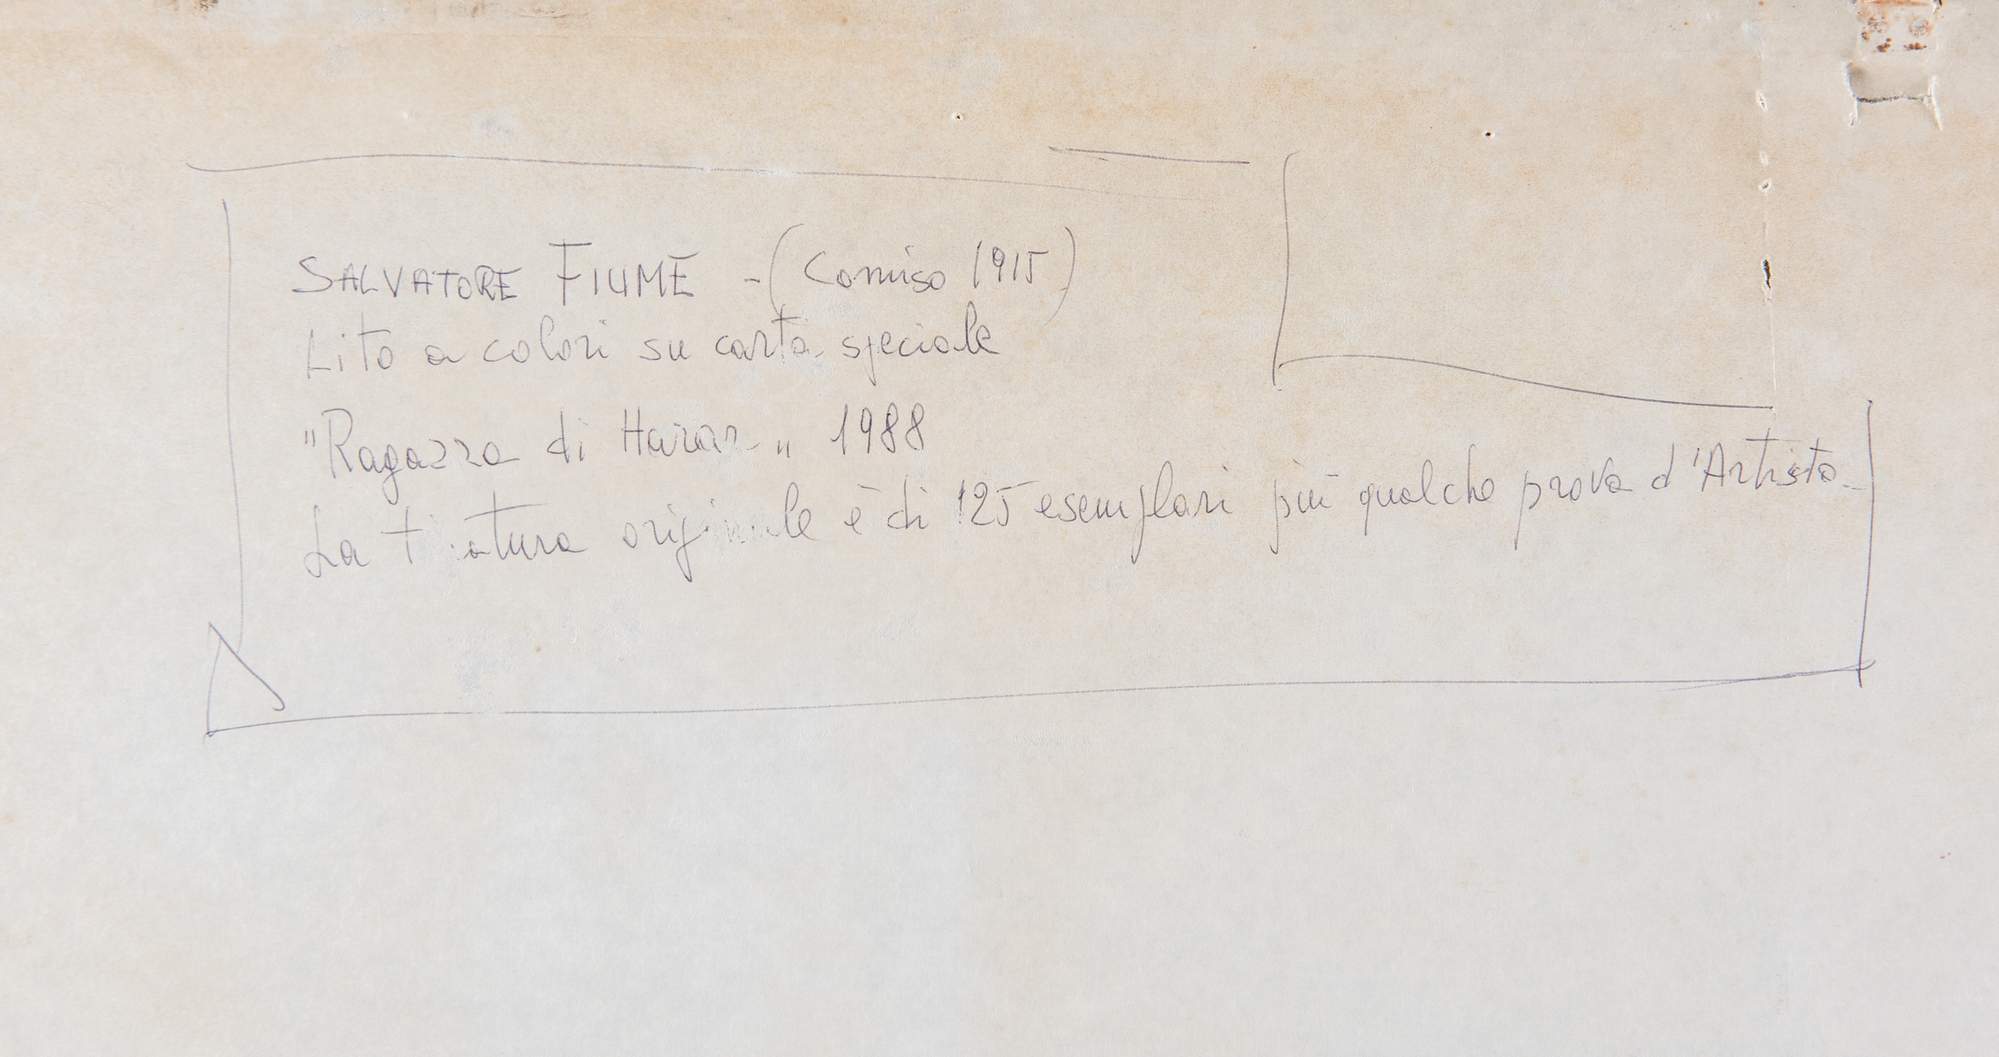 SALVATORE FIUME - (Comiso 1915)
Lito a colori su carta speciale
"Ragazza di Harar" 1988
La tiratura originale è di 125 esemplari più qualche prova d'Artista